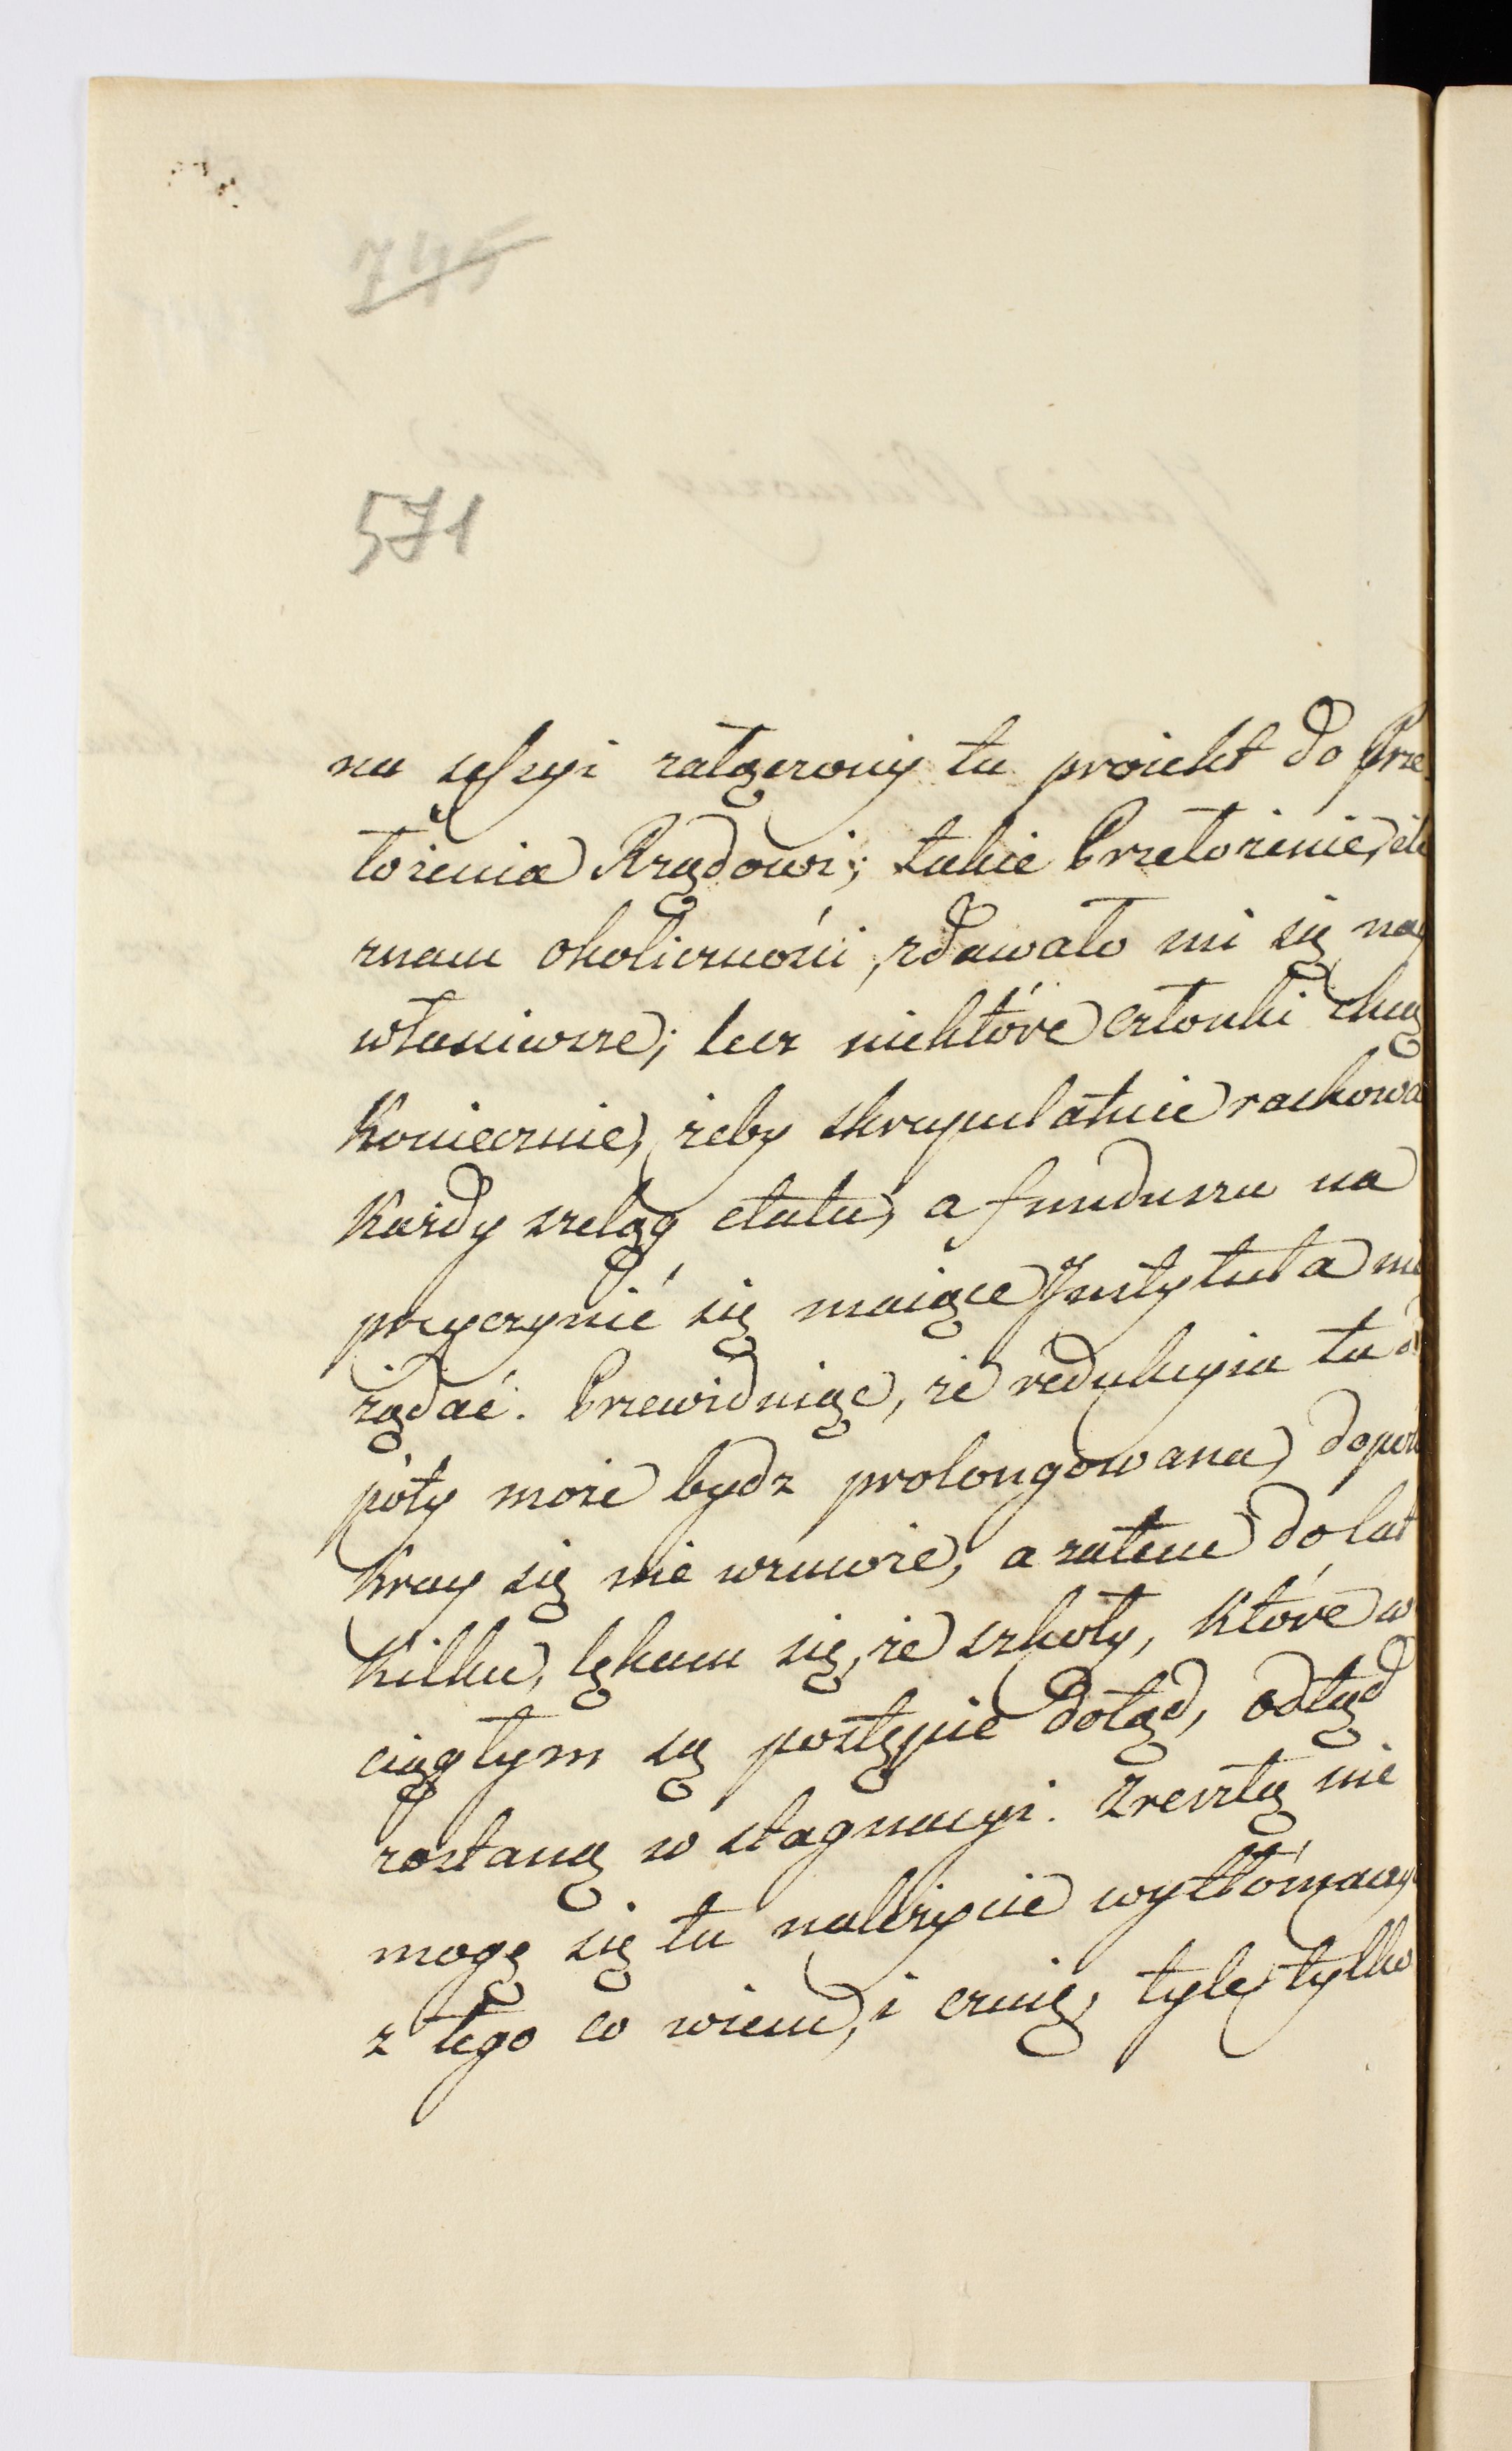 745
571
na sessyi załączony tu proiekt do Prze
łożenia Rządowi; takie Przełożenie, ile
znam okoliczności, zdawało mi się nay
właściwsze; lecz niektóre członki chcą
koniecznie, żeby skrupulatnie rachować
każdy szeląg etatu, a funduszu na
przyczynić się maiące Instytuta nie
żądać. Przewiduiąc, że redukcyia ta d
póty może bydz prolongowana, dopóki
kray się nie wzmoże, a zatem do lat
kilku, lękam się, że szkoły, które w
ciągłym są postępie dotąd, odtąd
zostaną w stagnacyi. Zresztą nie
mogę się tu należycie wytłómaczyć
z tego co wiem, i czuię, tyle tylko